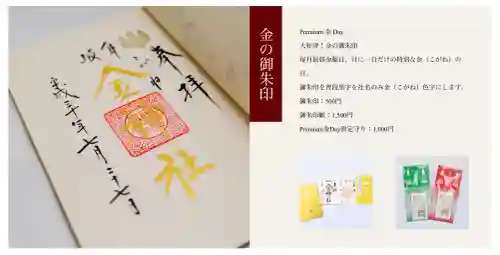 奉拝
岐阜
金
社
平成三十年七月二十七日
金の御朱印
Premium 金 Day
大好評!金の御朱印
毎月最終金曜日、月に一日だけの特別な金(こがね)の
日。
御朱印を普段墨字を社名のみ金(こがね)色字にします。
御朱印:500円
御朱印帳:1,500円
Premium金Day限定守り:1,000円